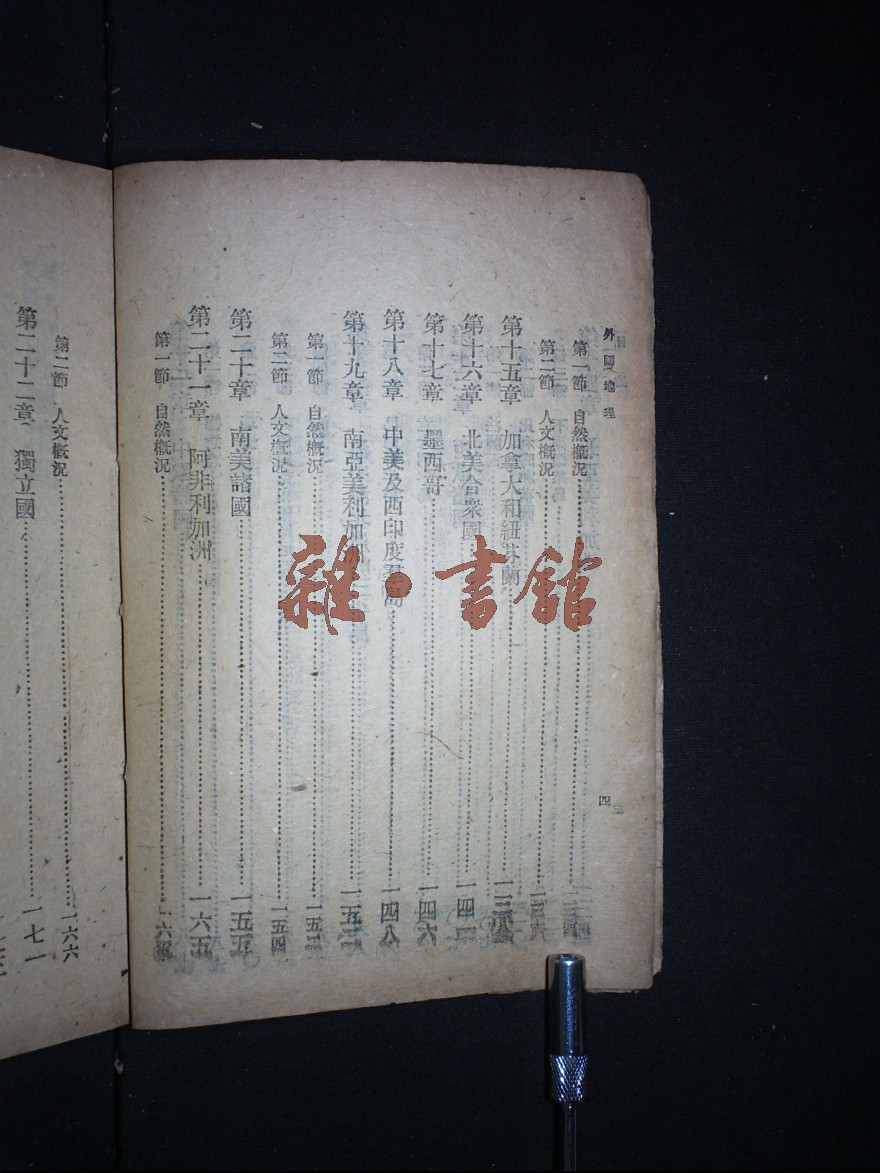 外國地理
四
第一節 自然概況
第二節 人文概況 一三六
第十五章 加拿大和紐芬蘭
第十六章 北美合衆國
第十七章 墨西哥 一四六
第十八章 中美及西印度羣島 一四八
第十九章 南亞美利加洲
第一節 自然概況
第二節 人文概況 一五四
第二十章 南美諸國 一五五
第二十一章 阿非利加洲 一六五
第一節 自然概況
第二節 人文概況 一六六
第二十二章 獨立國 一七一
雜·書館